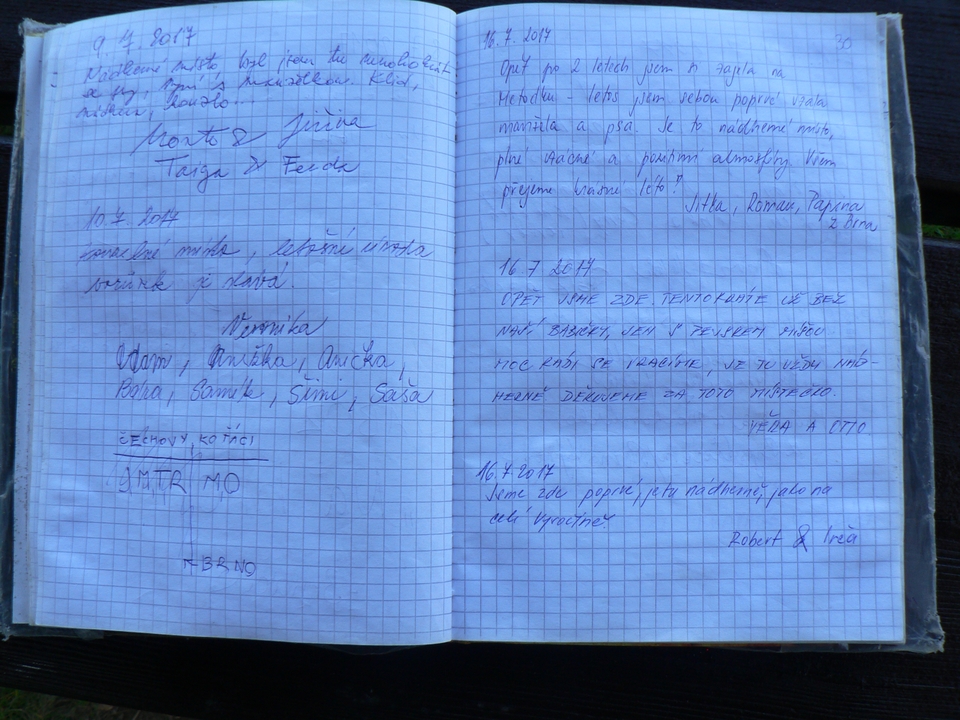 9. 7. 2017
Nádherné místo, byl jsem tu
nyní s manželkou. Klid,
kouzlo...
Jiřina
Taiga & Ferda
10. 7. 2017
letošní úroda
borůvek je slavá.
Veronika
Adam, Anička,
Bára, Samík, Šimi, Saša
ČECHOVY, KOŤÁCI
BRNO
16. 7. 2017
30
Opět po 2 letech jsem si zajela na
Metodku - letos jsem sebou poprvé vzala
manžela a psa. Je to nádherné místo,
plné vzácné a poutní atmosféry. Všem
přejeme krásné léto!
Jitka, Roman,
z Brna
16. 7 2017
OPĚT JSME ZDE, TENTOKRÁTE UŽ BEZ
NAŠÍ BABIČKY, JEN S PEJSKEM
MOC RÁDI SE VRACÍME, JE TO VŽDY NÁD-
HERNÉ DĚKUJEME ZA TOTO MÍSTEČKO.
VĚRA A OTTO
16. 7 2017
Jsme zde poprvé, je tu nádherně, jako na
celé Vysočině.
Robert & Irča